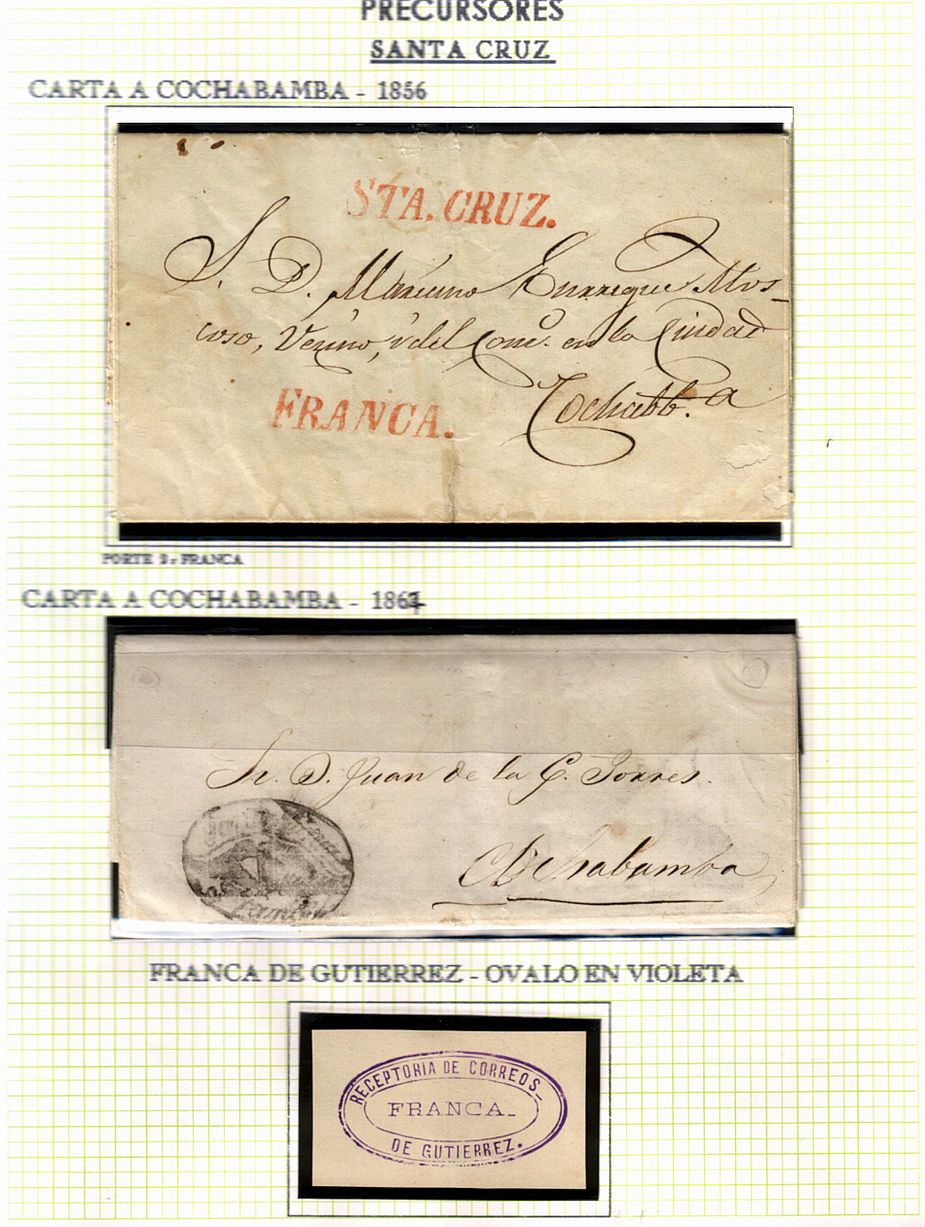 PRECURSORES
SANTA CRUZ
CARTA A COCHABAMBA - 1856
STA. CRUZ.
S. D. Mariano Enrrique Mos-
coso, Vecino, del Com.o en la Ciudad
Cochabb.a
FRANCA.
PORTE 9r FRANCA
CARTA A COCHABAMBA - 1867
Sr. D. Juan de la C. Torres.
Cochabamba
FRANCA DE GUTIERREZ - OVALO EN VIOLETA
RECEPTORIA DE CORREOS
FRANCA.
DE GUTIERREZ.